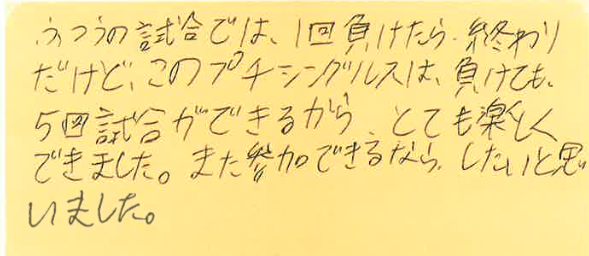 ふつうの試合では、1回負けたら、終わり
だけど、このプチシングルスは、負けても、
5回試合ができるから、とても楽しく
できました。また参加できるなら、したいと思
いました。